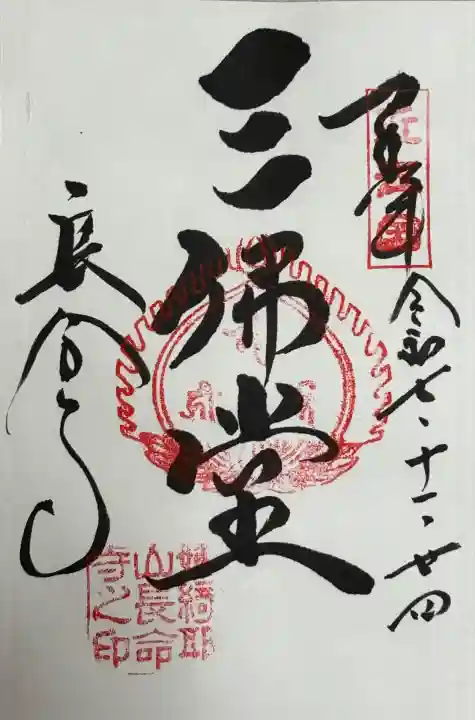 奉拝
令和七、十一、廿四
三佛堂
長命寺
姨綺耶
山長命
寺之印